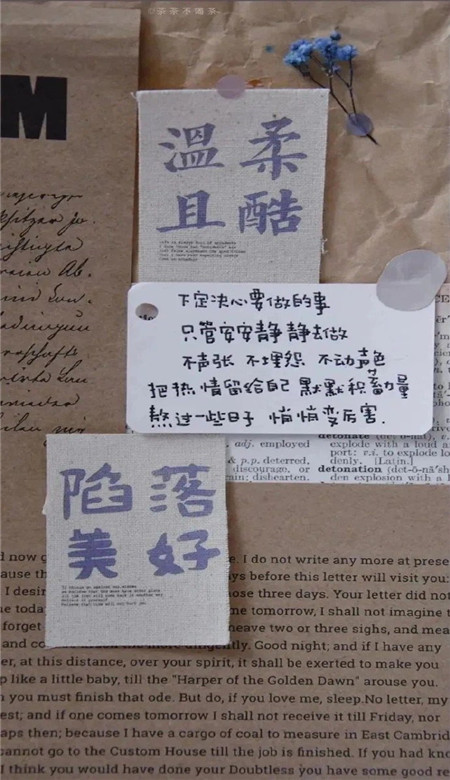 @茶茶不喝茶
M
温柔
且酷
下定决心要做的事
只管安安静静去做
不声张 不埋怨 不动声色
把热情留给自己 默默积蓄力量
熬过一些日子 悄悄变厉害.
adj. employed
& p.p. deterred,
discourage, or
rain; dishearten.
detonate
explode with a loud
port: v.i. to explode
denly. [Latin.]
detonation (dĕt-ō-nā'sh
den explosion with a l
陷落
美好
d now g
e. I do not write any more at prese
ause th
ys before this letter will visit you:
I desir
ose three days. Your letter did not
me toda
me tomorrow, I shall not imagine t
forget
heave two or three sighs, and mea
and co
diligently. Good night; and if I have any
er, at this distance, over your spirit, it shall be exerted to make you
p like a little baby, till the "Harper of the Golden Dawn" arouse you.
n you must finish that ode. But do, if you love me, sleep.No letter, my
est; and if one comes tomorrow I shall not receive it till Friday, nor
aps then; because I have a cargo of coal to measure in East Cambrid
cannot go to the Custom House till the job is finished. If you had kno
I think you would have done your Doubtless you have some good re